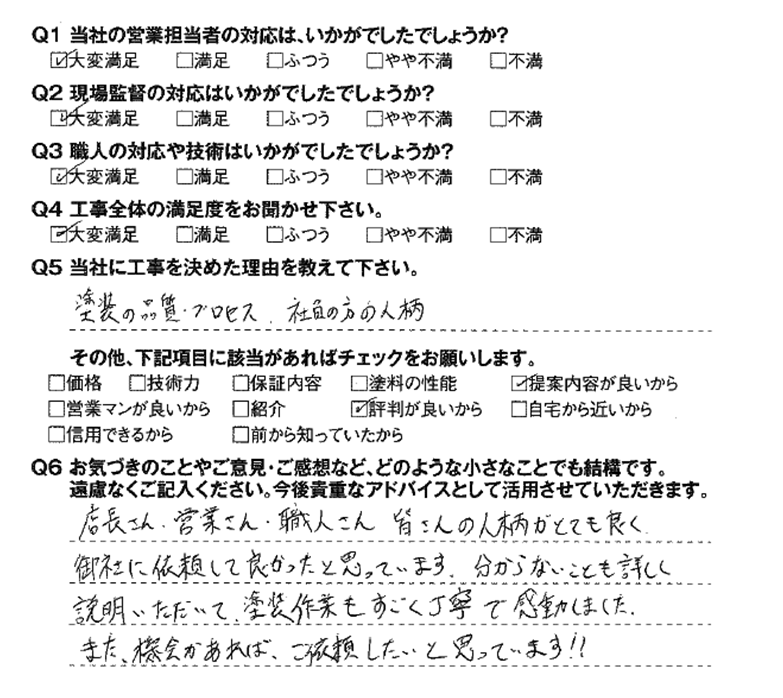 Q1 当社の営業担当者の対応は、いかがでしたでしょうか?
☑大変満足 □満足 □ふつう □やや不満 □不満
Q2 現場監督の対応はいかがでしたでしょうか?
☑大変満足 □満足 □ふつう □やや不満 □不満
Q3 職人の対応や技術はいかがでしたでしょうか?
☑大変満足 □満足 □ふつう □やや不満 □不満
Q4 工事全体の満足度をお聞かせ下さい。
☑大変満足 □満足 □ふつう □やや不満 □不満
Q5 当社に工事を決めた理由を教えて下さい。
塗装の品質・プロセス、社員の方の人柄
その他、下記項目に該当があればチェックをお願いします。
□価格 □技術力 □保証内容 □塗料の性能 ☑提案内容が良いから
□営業マンが良いから □紹介 ☑評判が良いから □自宅から近いから
□信用できるから □前から知っていたから
Q6 お気づきのことやご意見・ご感想など、どのような小さなことでも結構です。
遠慮なくご記入ください。今後貴重なアドバイスとして活用させていただきます。
店長さん・営業さん・職人さん 皆さんの人柄がとても良く
御社に依頼して良かったと思っています。分からないことも詳しく
説明いただいて、塗装作業もすごく丁寧で感動しました。
また、機会があれば、ご依頼したいと思っています!!